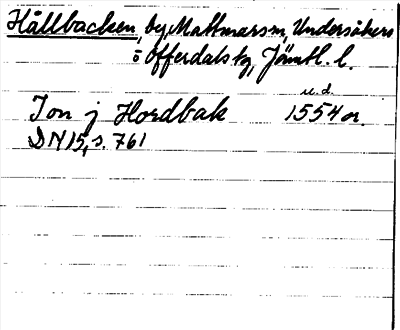 Hållbacken by, Mattmars sn, Undersåkers
o Offerdals tg, Jämtl. l.
u.d.
Jon j Hordbak 1554 or.
DN 15, s. 761